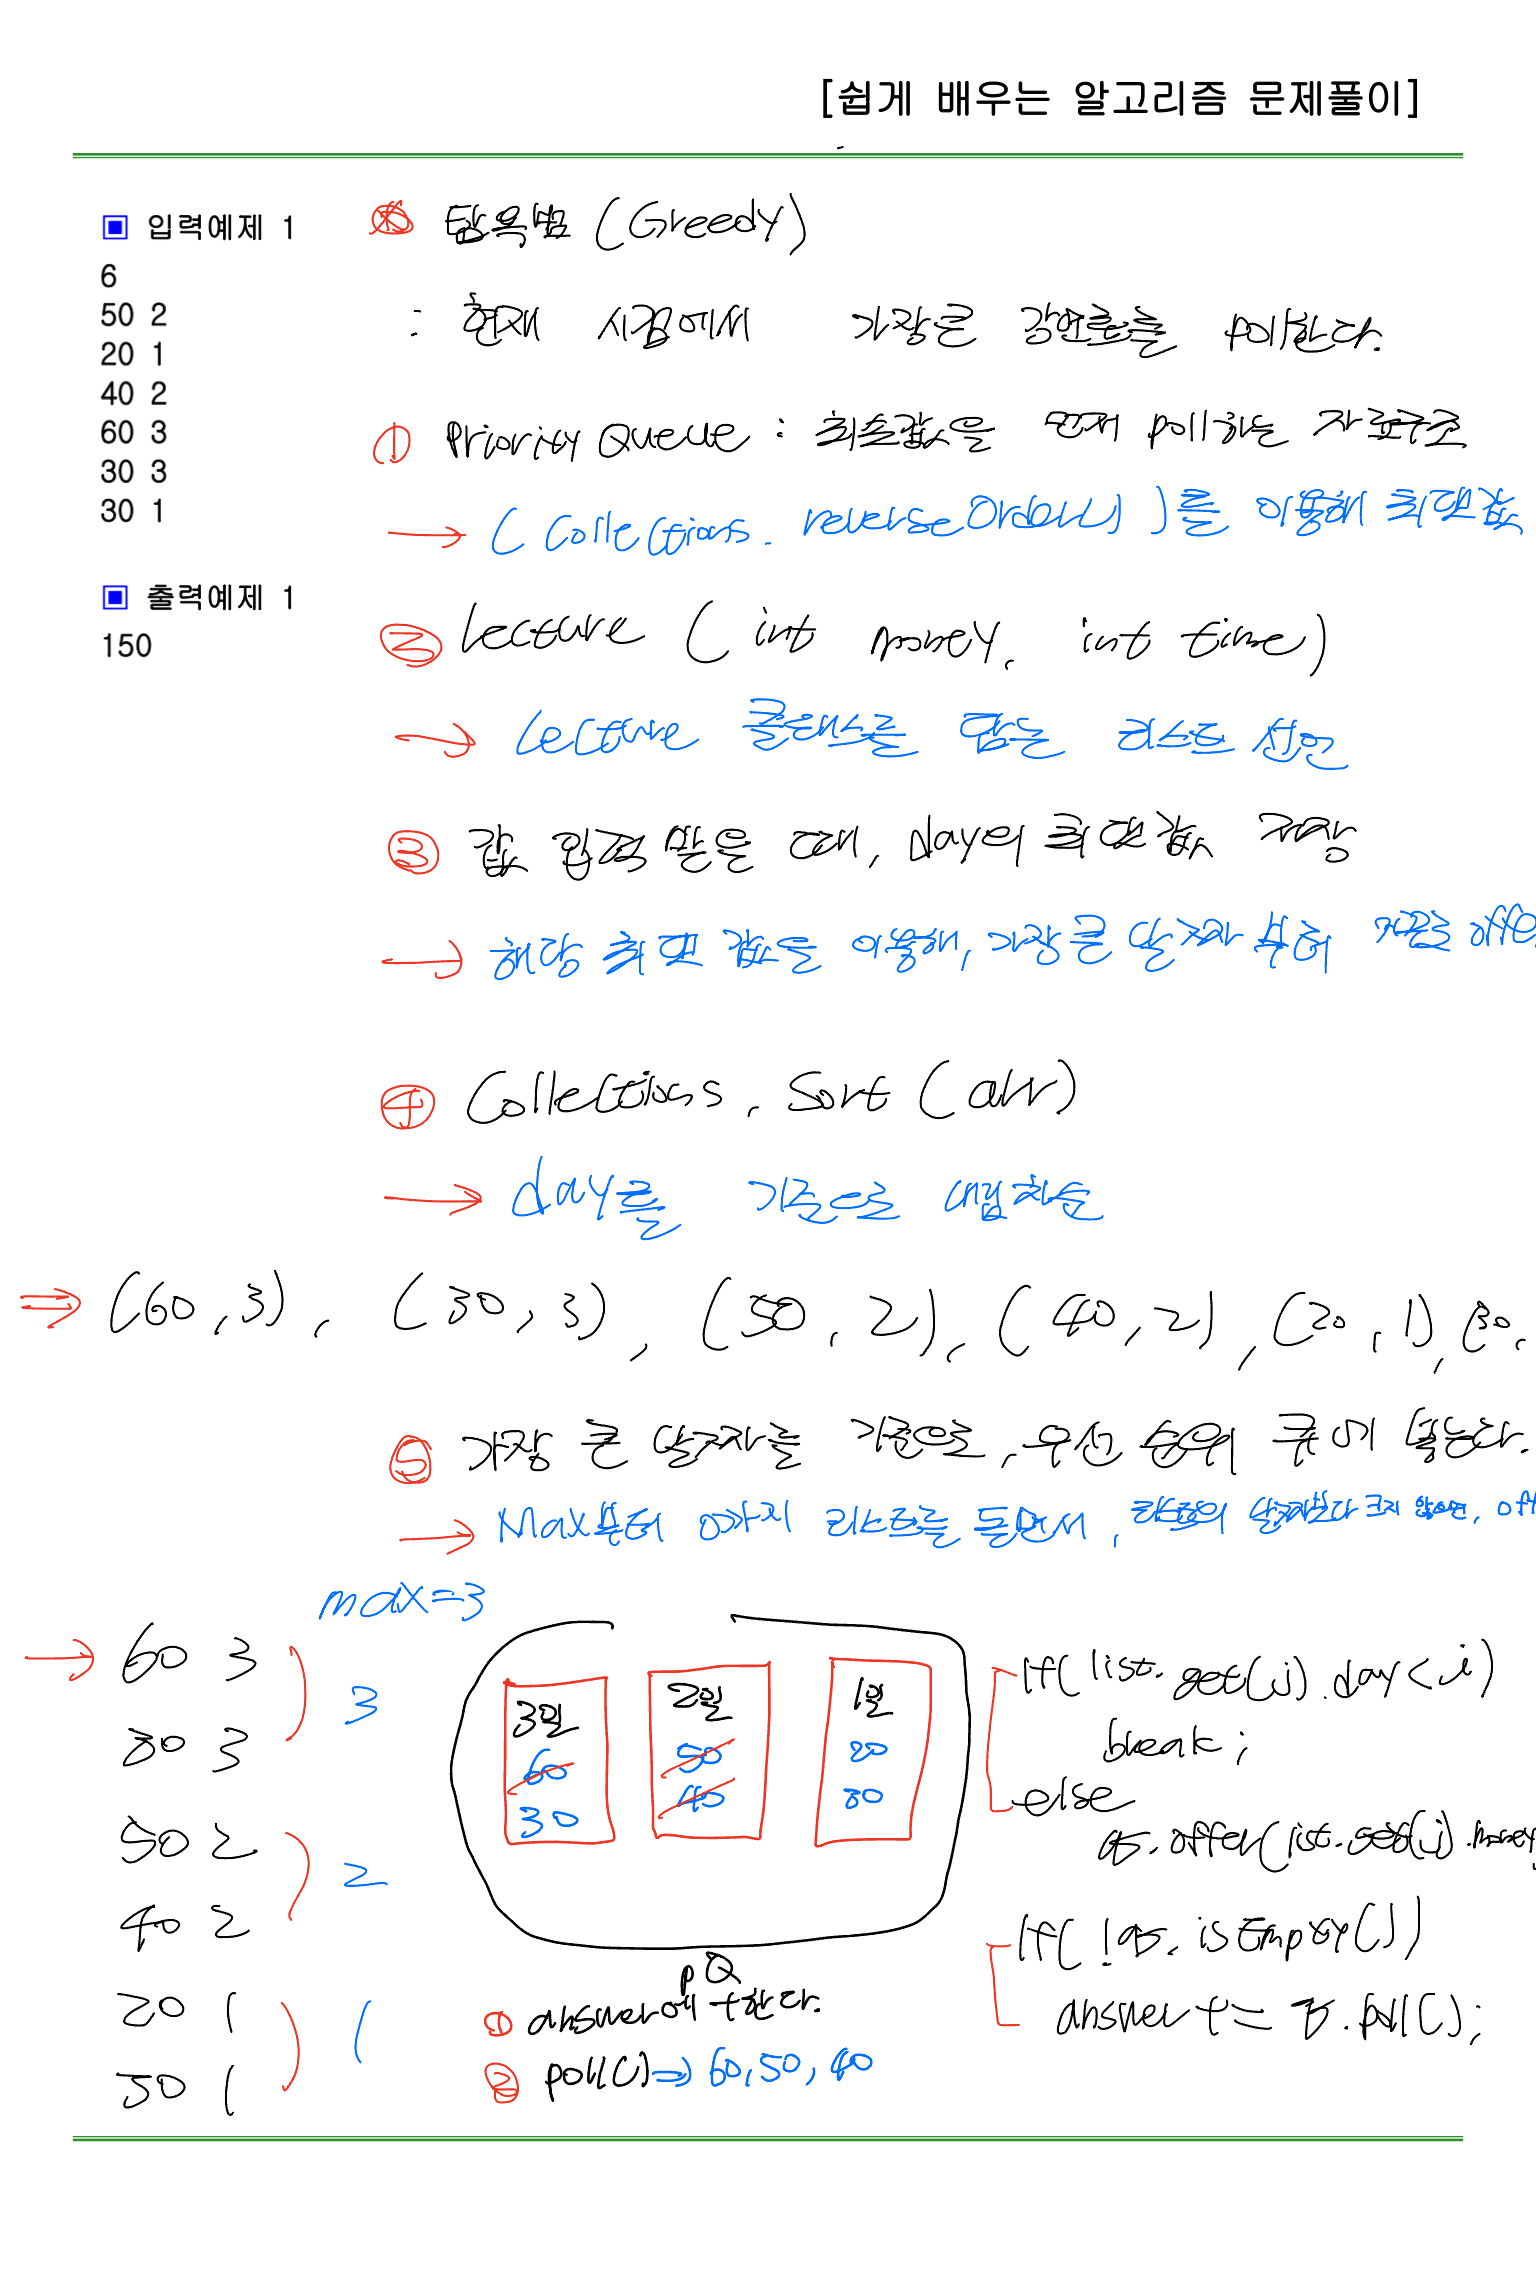 [쉽게 배우는 알고리즘 문제풀이]
▣ 입력예제 1
6
50 2
20 1
40 2
60 3
30 3
30 1
▣ 출력예제 1
150
탐욕법 (Greedy)
: 현재 시점에서 가장큰 강연료를 poll한다.
① Priority Queue : 최솟값을 먼저 poll하는 자료구조
→ (Collections. reverseOrder())를 이용해 최댓값
② Lecture (int money, int time)
→ Lecture 클래스를 담는 리스트 선언
③ 값 입력 받을 때, day의 최댓값 저장
→ 해당 최댓값을 이용해, 가장 큰 날짜자 부터 offe
④ Collections. Sort (arr)
→ day를 기준으로 내림차순
⇒ (60,3), (30,3), (50,2), (40,2), (20,1), (30,
⑤ 가장 큰 날짜자를 기준으로, 우선 순위 큐에 넣는다.
→ Max부터 0까지 리스트를 돌면서, 리스트의 날짜보다 크지 않으면, off
max=3
→ 60 3
30 3
3
50 2
40 2
2
20 1
30 1
1
3일
60
30
2일
50
40
1일
20
30
pQ
① answer에 +한다.
② poll() ⇒ 60, 50, 40
If( list. get(j). day < i)
break;
else
q. offer(list. get(j). money
If( !q. isEmpty())
answer += q. poll();